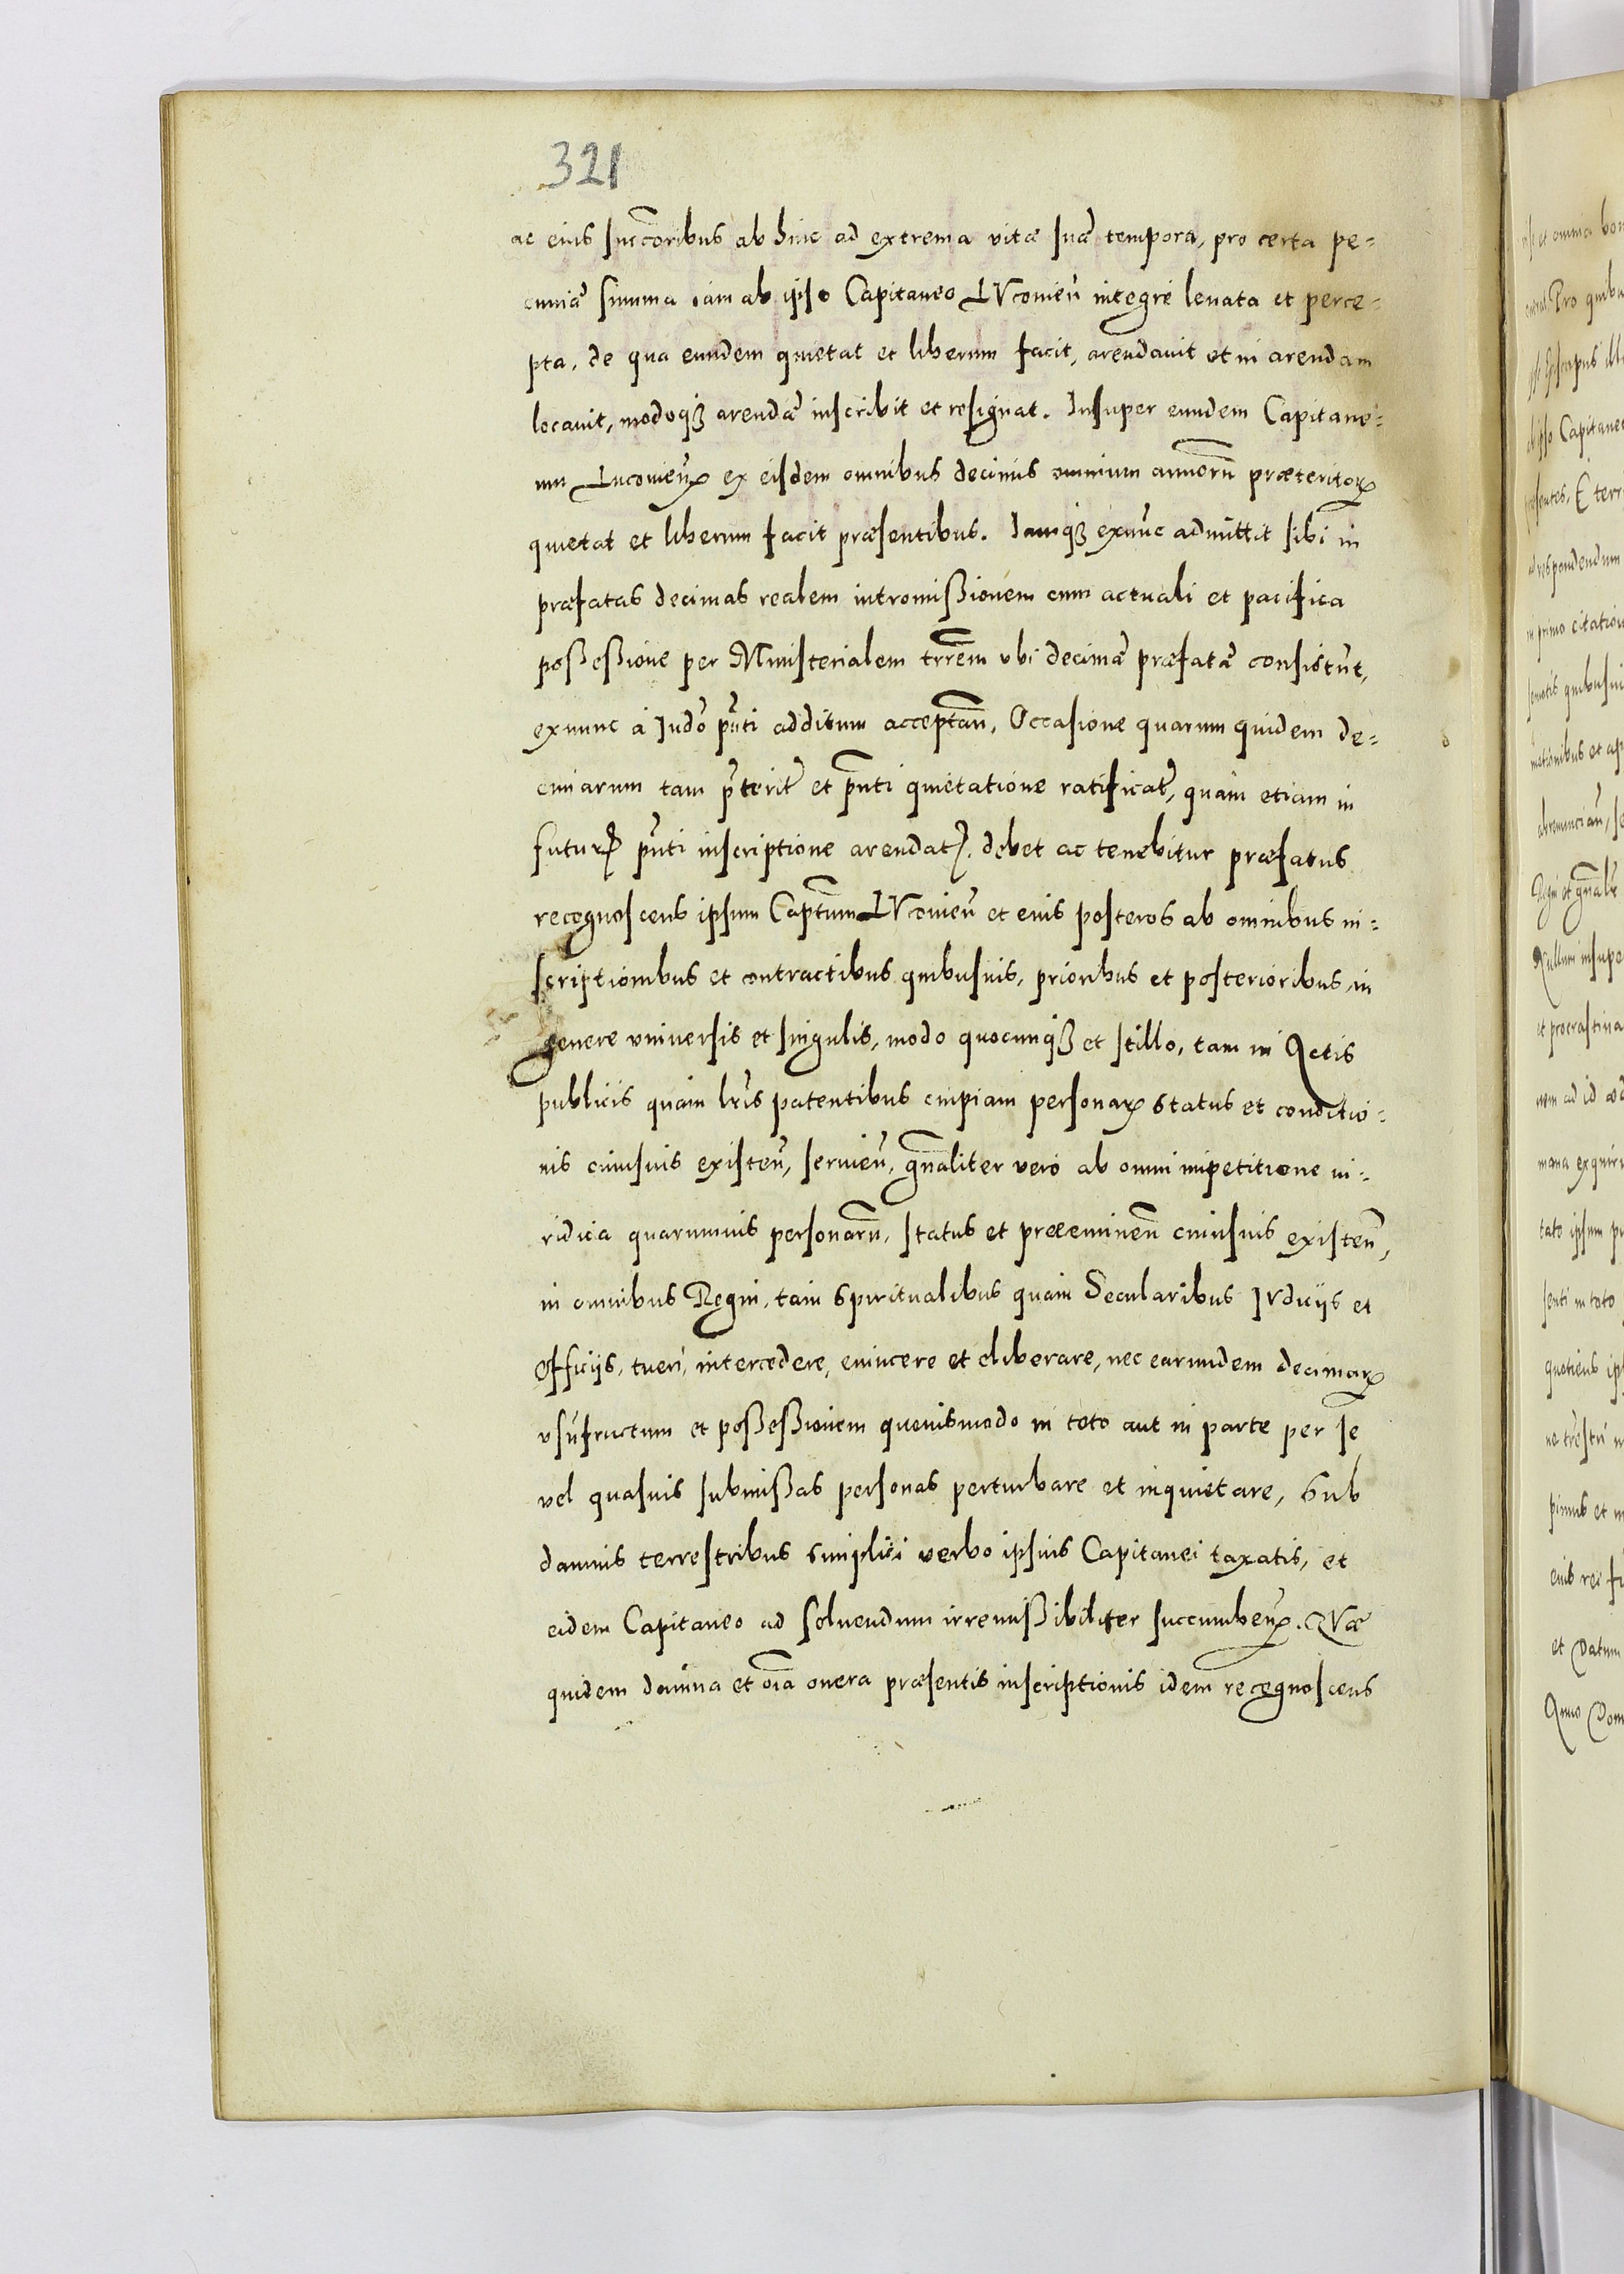 321
ac eius succoribus ab hinc ad extrema vitæ suæ tempora, pro certa pe=
cuniæ summa iam ab ipso Capitaneo LVconień integre leuata et perce=
pta, de qua eundem quietat et liberum facit, arendauit et in arendam
locauit, modoqꝫ arendæ inscribit et resignat. Insuper eundem Capitane=
um Luconień ex eisdem omnibus decimis omnium annorū præteritoꝝ
quietat et liberum facit præsentibus. Iamqꝫ exnūc admittit sibi in
præfatas decimas realem intromißionem cum actuali et pacifica
poßeßione per Ministerialem trrēm vbi decimæ præfatæ consistūt,
exnunc à Iudō pn̄ti additum acceptań, Occasione quarum quidem de=
cimarum tam pr̄terit̄ et pn̄ti quietatione ratificat̄, quàm etiam in
futuꝝ pn̄ti inscriptione arendatꝝ. debet ac tenebitur præfatus
recognoscens ipsum Captūm LVconień et eius posteros ab omnibus in=
scriptionibus et contractibus quibusuis, prioribus et posterioribus, in
genere vniuersis et singulis, modo quocunqꝫ et stillo, tam in Actis
publicis quàm lrīs patentibus cuipiam personaꝝ status et conditio=
nis cuiusuis existeń, seruień, gn̄aliter vero ab omni impetitione iu=
ridica quarumuis personarū, status et præeminen̄ cuiusuis existen̄,
in omnibus Regni, tam Spiritualibus quàm Secularibus IVdicijs et
Officijs, tueri, intercedere, euincere et eliberare, nec earundem decimaꝝ
vsūfructum et poßeßionem quouismodo in toto aut in parte per se
vel quasuis submißas personas perturbare et inquietare, Sub
damnis terrestribus simplici verbo ipsius Capitanei taxatis, et
eidem Capitaneo ad soluendum irremißibiliter succumbeń. QVæ
quidem damna et oīa onera præsentis inscriptionis idem recognoscens